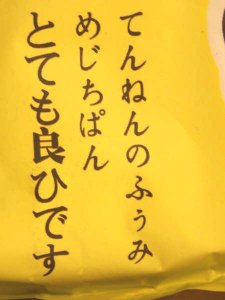 てんねんのふぅみ
めじちぱん
とても良ひです